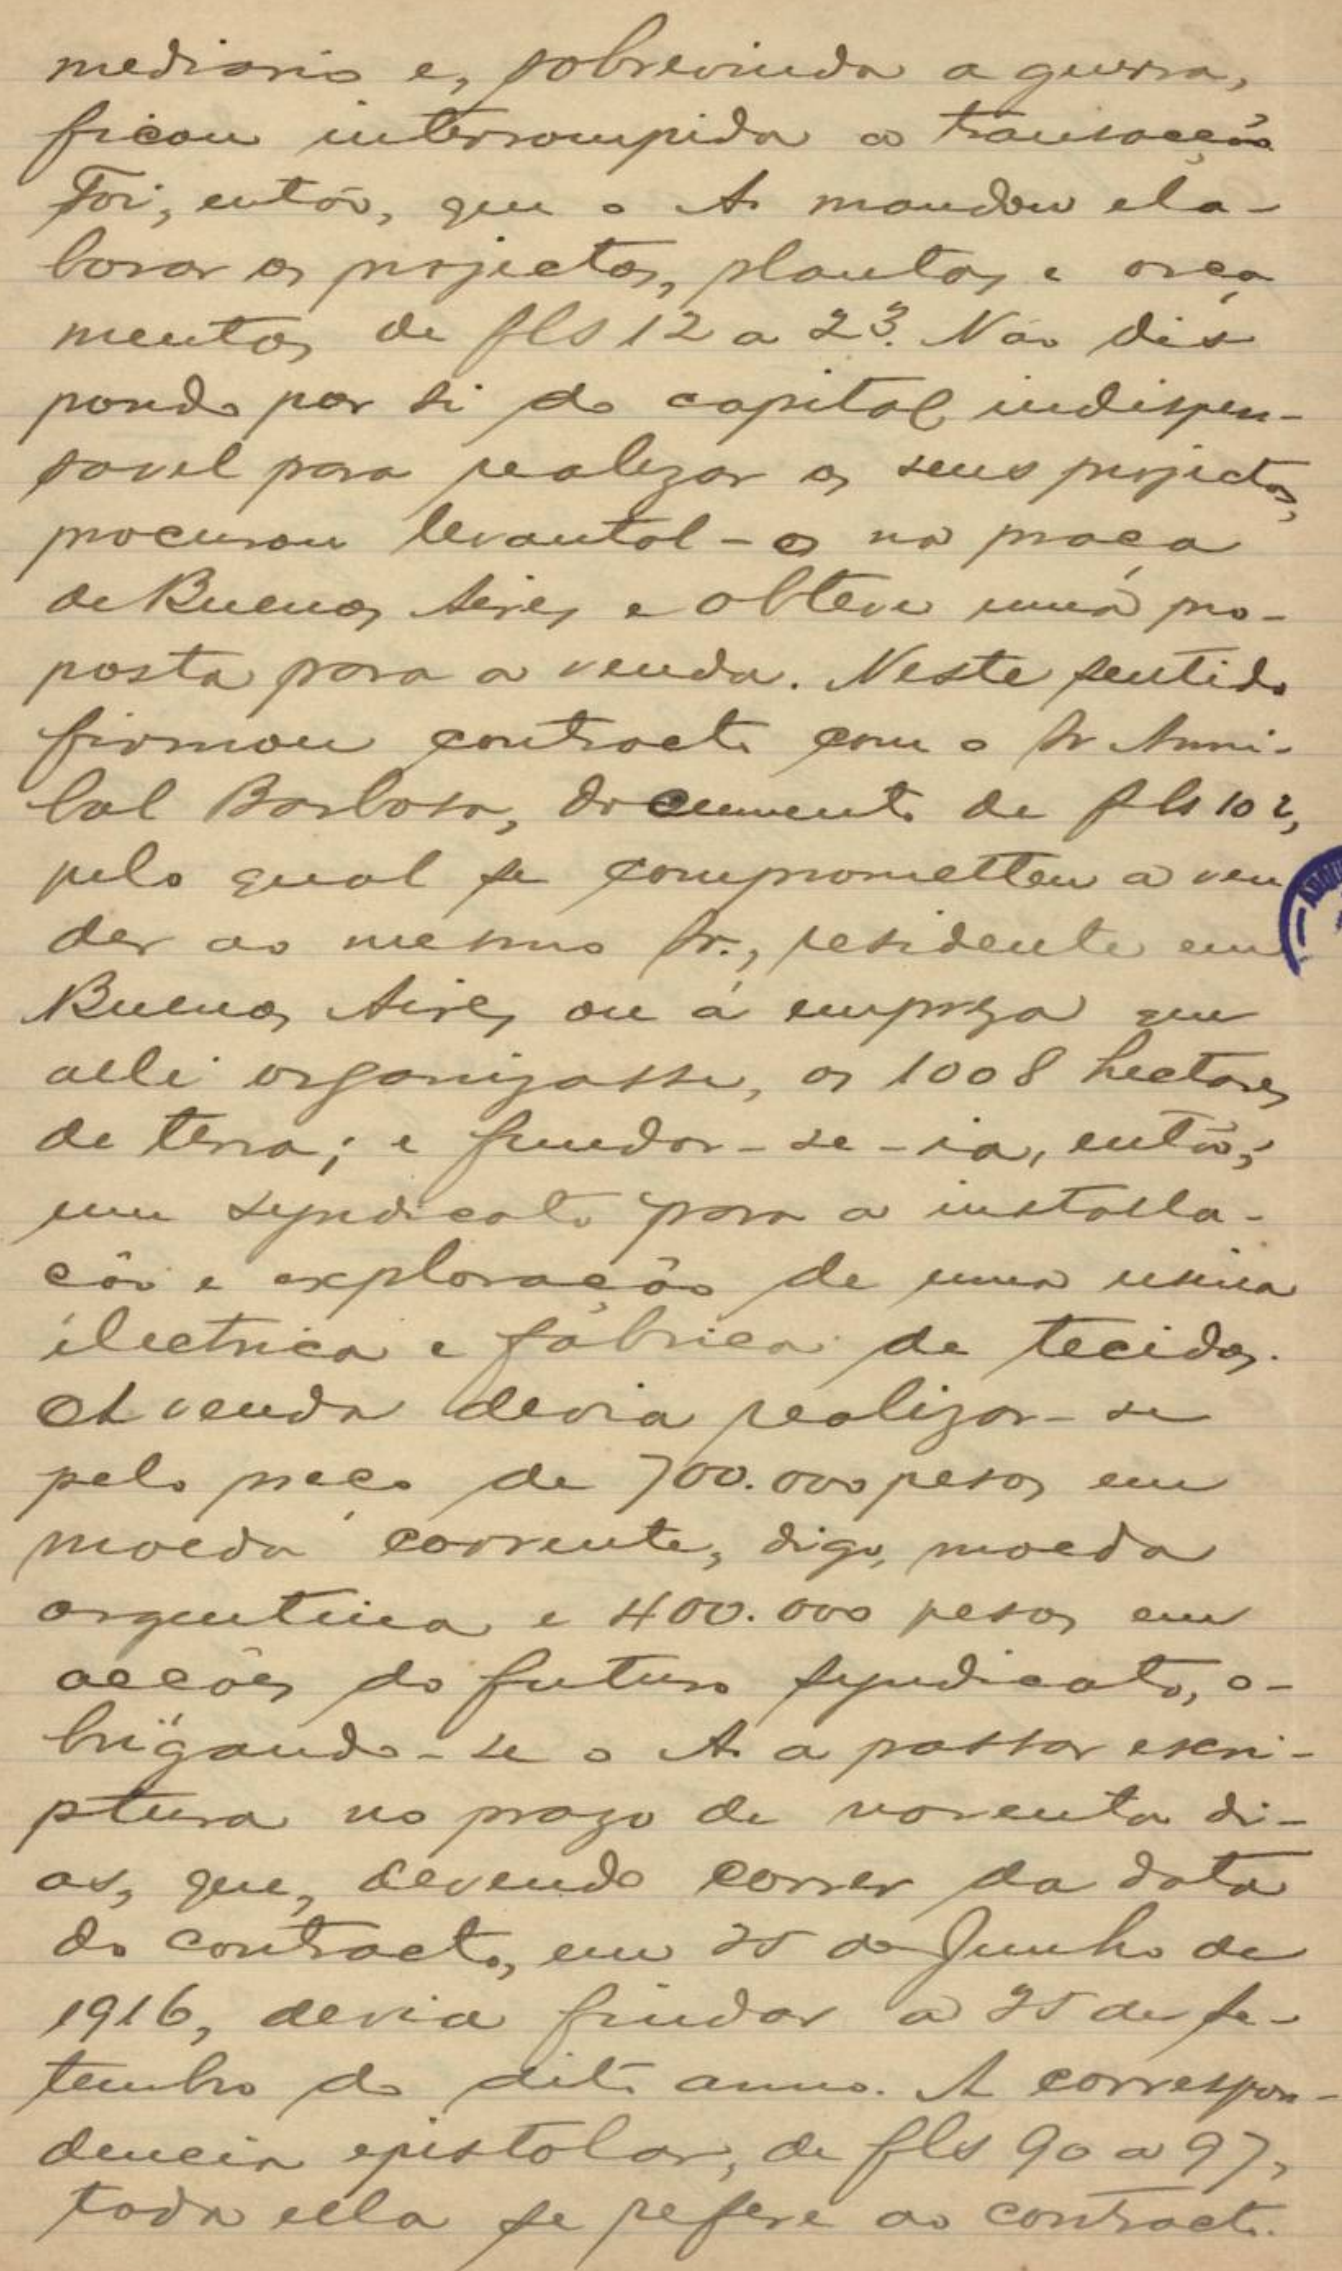 mediario e, sobrevinda a guerra,
ficou interrompida a transacção
Foi, então, que o A. mandou ela-
borar os projectos, plantas e orça
mentos de fls 12 a 23. Não dis
pondo por si do capital indispen-
savel para realizar os seus projectos,
procurou levantal-o na praça
de Buenos Aires e obteve uma pro-
posta para a venda. Neste sentido
firmou contracto com o Sr Anni-
bal Barbosa, documento de fls 102,
pelo qual se comprometteu a ven
der ao mesmo Sr., residente em
Buenos Aires ou á empreza que
alli organizasse, os 1008 hectares
de terra; e fundar-se-ia, então,
um syndicato para a installa-
ção e exploração de uma usina
electrica e fábrica de tecidos.
A venda devia realizar-se
pelo preço de 700.000 pesos em
moeda corrente, digo, moeda
argentina e 400.000 pesos em
acções do futuro syndicato, o-
brigando-se o A. a passar escri-
ptura no prazo de noventa di-
as, que, devendo correr da data
do contracto, em 25 de Junho de
1916, devia findar a 25 de se-
tembro do dito anno. A correspon-
dencia epistolar, de fls 90 a 97,
toda ella se refere ao contracto.